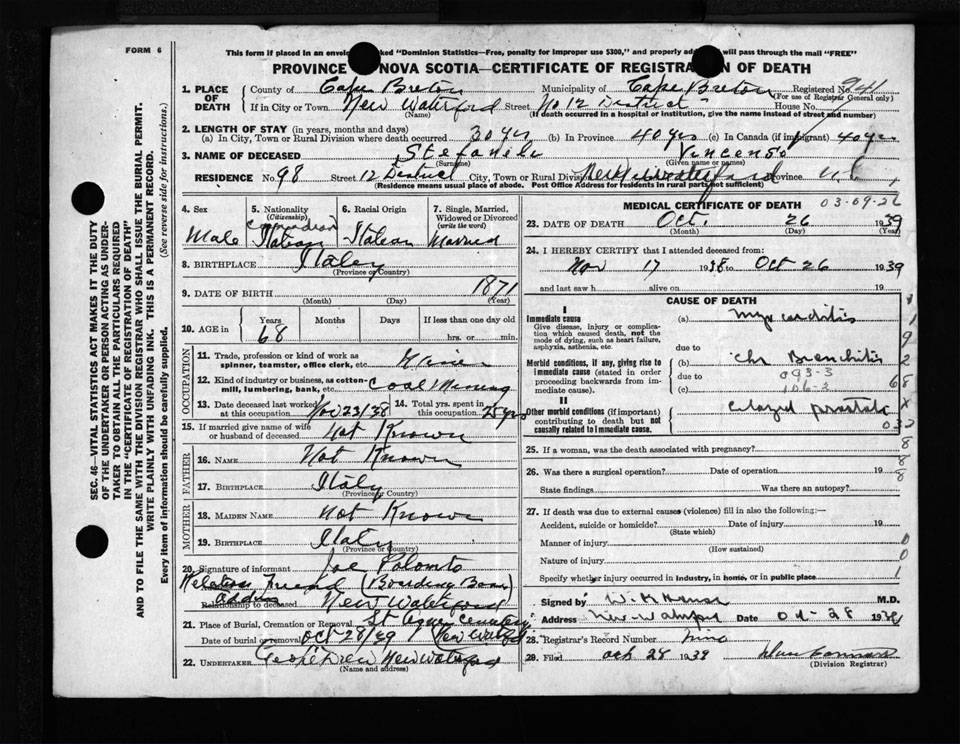 FORM 6
This form if placed in an envelope marked "Dominion Statistics—Free, penalty for improper use $300," and properly addressed will pass through the mail "FREE"
PROVINCE OF NOVA SCOTIA—CERTIFICATE OF REGISTRATION OF DEATH
SEC. 46—VITAL STATISTICS ACT MAKES IT THE DUTY OF THE UNDERTAKER OR PERSON ACTING AS UNDERTAKER TO OBTAIN ALL THE PARTICULARS REQUIRED IN THE "CERTIFICATE OF REGISTRATION OF DEATH"
AND TO FILE THE SAME WITH THE DIVISION REGISTRAR WHO SHALL ISSUE THE BURIAL PERMIT.
WRITE PLAINLY WITH UNFADING INK. THIS IS A PERMANENT RECORD.
Every item of information should be carefully supplied. (See reverse side for instructions.)
1. PLACE OF DEATH County of Cape Breton Municipality of Cape Breton Registered No. 941
(For use of Registrar General only)
If in City or Town New Waterford Street No 12 District House No.
(Name) (If death occurred in a hospital or institution, give the name instead of street and number)
2. LENGTH OF STAY (in years, months and days)
(a) In City, Town or Rural Division where death occurred 30 yrs (b) In Province 40 yrs (c) In Canada (if immigrant) 40 yrs
3. NAME OF DECEASED Stefanile Vincenso
(Surname) (Given name or names)
RESIDENCE No. 98 Street 12 District City, Town or Rural Division New Waterford Province N.S.
(Residence means usual place of abode. Post Office Address for residents in rural parts not sufficient)
4. Sex Male
5. Nationality (Citizenship) Canadian Italian
6. Racial Origin Italian
7. Single, Married, Widowed or Divorced (write the word) Married
8. BIRTHPLACE Italy
(Province or Country)
9. DATE OF BIRTH 1871
(Month) (Day) (Year)
10. AGE in Years Months Days If less than one day old
68 hrs. or min.
OCCUPATION
11. Trade, profession or kind of work as spinner, teamster, office clerk, etc.
12. Kind of industry or business, as cotton-mill, lumbering, bank, etc. Coal Mining
13. Date deceased last worked at this occupation Nov 23/38
14. Total yrs. spent in this occupation 25 yrs
15. If married give name of wife or husband of deceased Not Known
FATHER
16. NAME Not Known
17. BIRTHPLACE Italy
(Province or Country)
MOTHER
18. MAIDEN NAME Not Known
19. BIRTHPLACE Italy
(Province or Country)
20. Signature of informant Joe Polomto
Relation Friend (Boarding Boss)
Address
Relationship to deceased New Waterford
21. Place of Burial, Cremation or Removal St Agnes Cemetery
Date of burial or removal Oct 28/39 New Waterford
22. UNDERTAKER New Waterford
(Name and address)
MEDICAL CERTIFICATE OF DEATH
03-09-26
23. DATE OF DEATH Oct. 26 1939
(Month) (Day) (Year)
24. I HEREBY CERTIFY that I attended deceased from:
Nov 17 1938 to Oct 26 1939
and last saw h alive on 19
CAUSE OF DEATH
I
Immediate cause (a) Myocarditis
Give disease, injury or complication which caused death, not the mode of dying, such as heart failure, asphyxia, asthenia, etc.
due to
Morbid conditions, if any, giving rise to immediate cause (stated in order proceeding backwards from immediate cause).
(b) Chr Bronchitis
due to 093-3
(c) 106-3
II
Other morbid conditions (if important) contributing to death but not causally related to immediate cause.
enlarged prostate
25. If a woman, was the death associated with pregnancy?
26. Was there a surgical operation? Date of operation 19
State findings Was there an autopsy?
27. If death was due to external causes (violence) fill in also the following:—
Accident, suicide or homicide? Date of injury 19
(State which)
Manner of injury
(How sustained)
Nature of injury
Specify whether injury occurred in industry, in home, or in public place
Signed by M.D.
Address New Waterford Date Oct-28 1939
28. Registrar's Record Number nine
29. Filed Oct 28 1939
(Division Registrar)